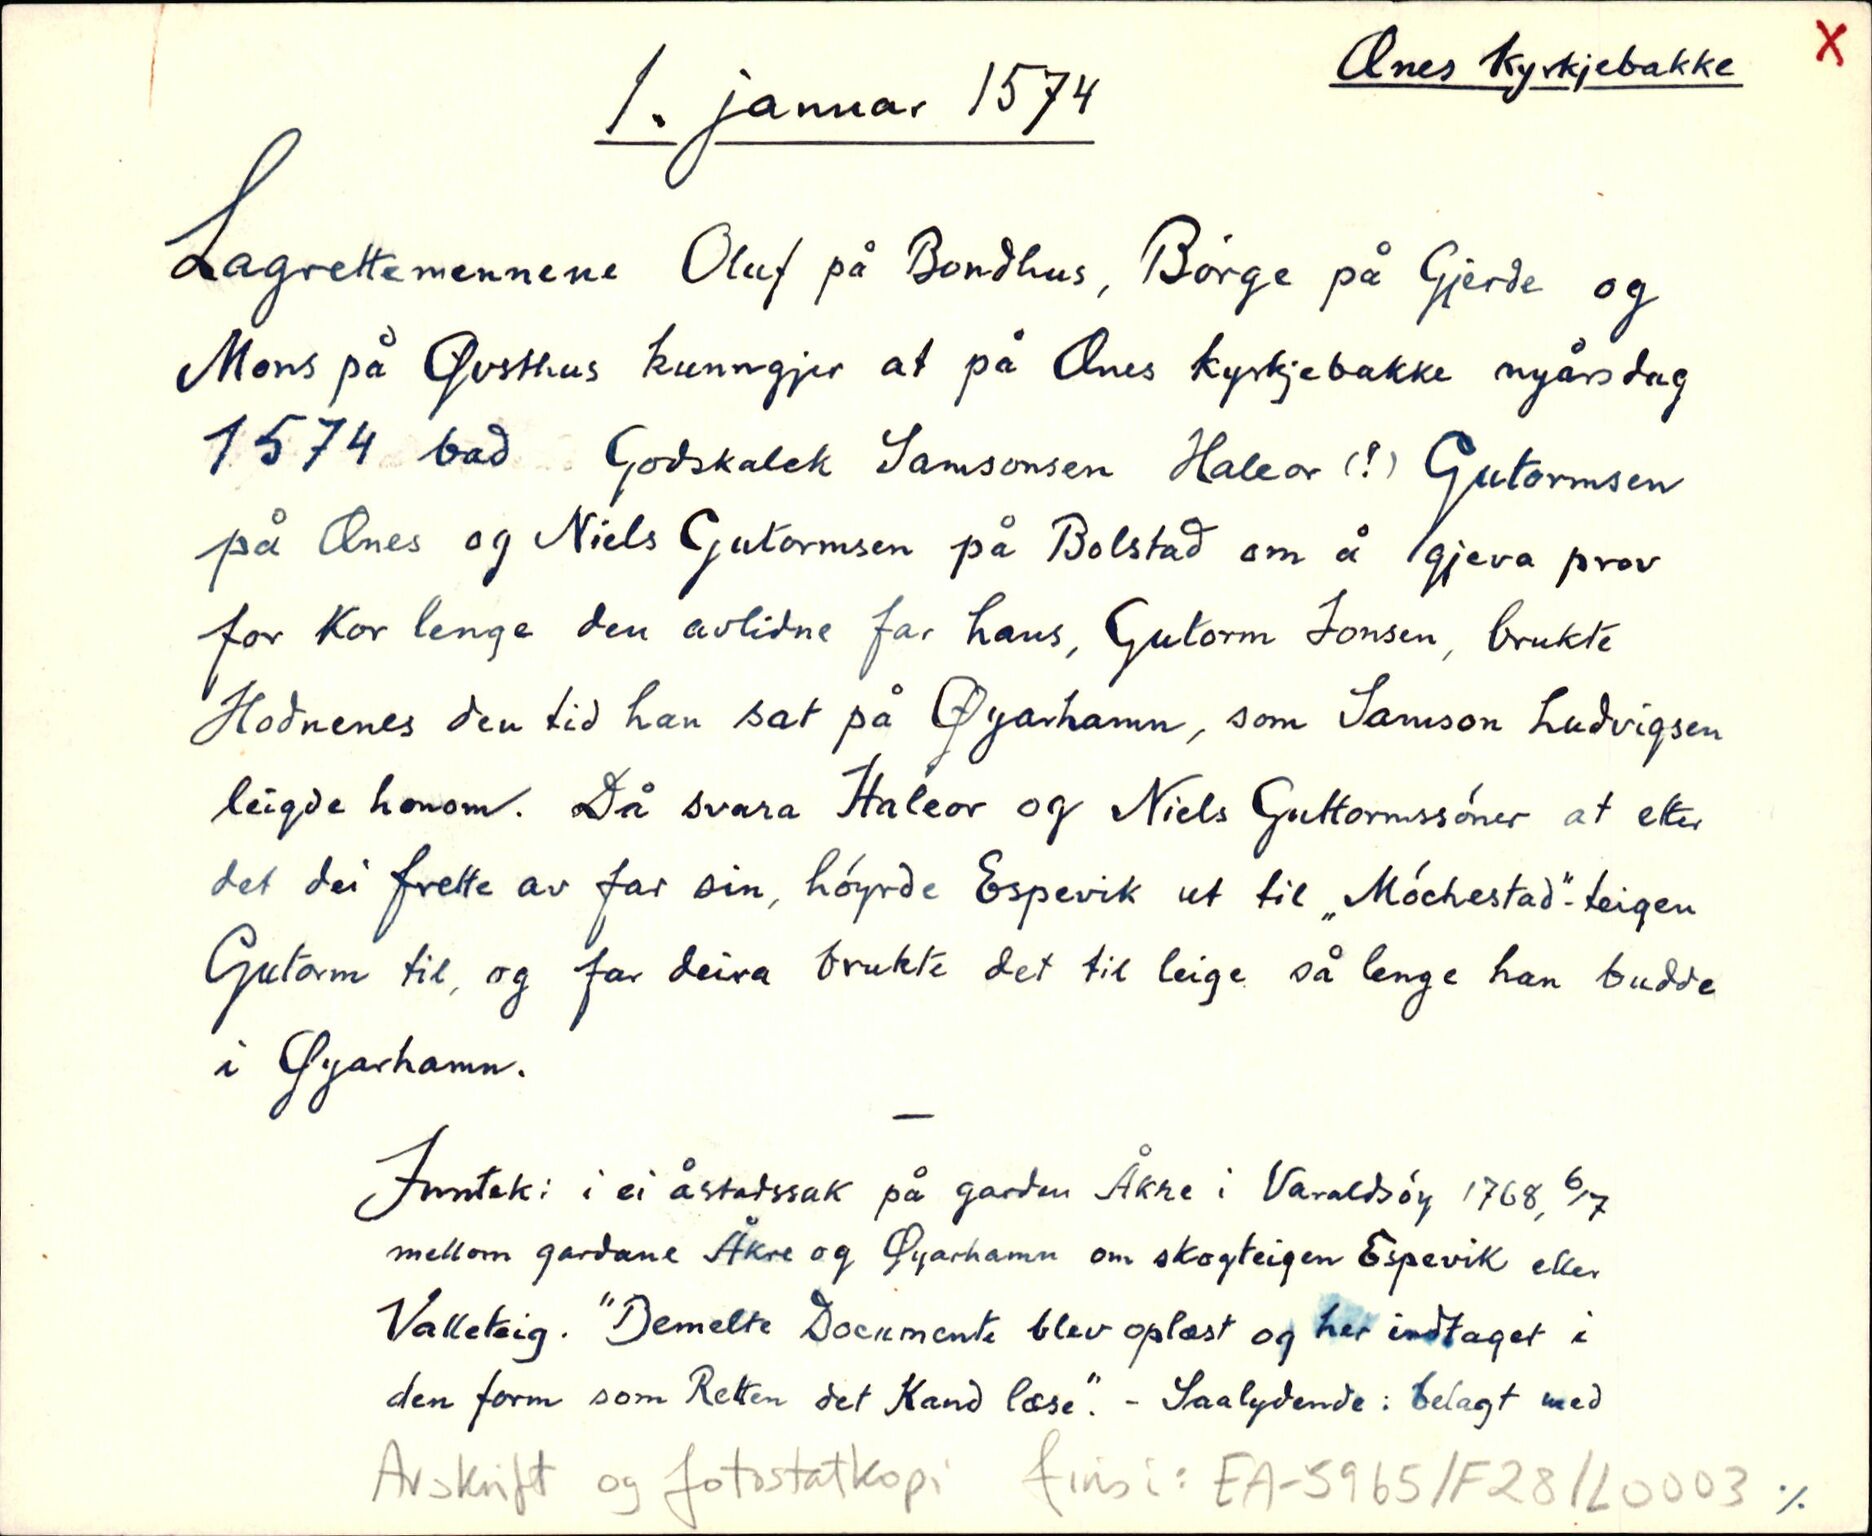 Ænes Kyrkjebakke X
1. januar 1574
Lagrettemennene Oluf på Bondhus, Börge på Gjerde og
Mons på Øvsthus kunngjer at på Ænes kyrkjebakke nyårsdag
1574 bad Godskalek Samsonsen Haleor (!) Gutormsen
på Ænes og Niels Gutormsen på Bolstad om å gjeva prov
for kor lenge den avlidne far hans, Gutorm Jonsen, brukte
Hodnenes den tid han sat på Øyarhamn, som Samson Ludvigsen
leigde honom. Då svara Haleor og Niels Guttormssóner at etter
det dei frette av far sin, hóyrde Espevik ut til „Móchestad"-teigen
Gutorm til, og far deira brukte det til leige så lenge han budde
i Øyarhamn.
—
Inntek: i ei åstadssak på garden Åkre i Varaldsóy 1768, 6/7
mellom gardane Åkre og Øyarhamn om skogteigen Espevik eller
Valleteig. "Bemelte Documente blev oplæst og her indtaget i
den form som Retten det Kand læse". - Saalydende: belagt med
Avskrift og fotostatkopi fins i: EA-5965/F28/L0003 ./.